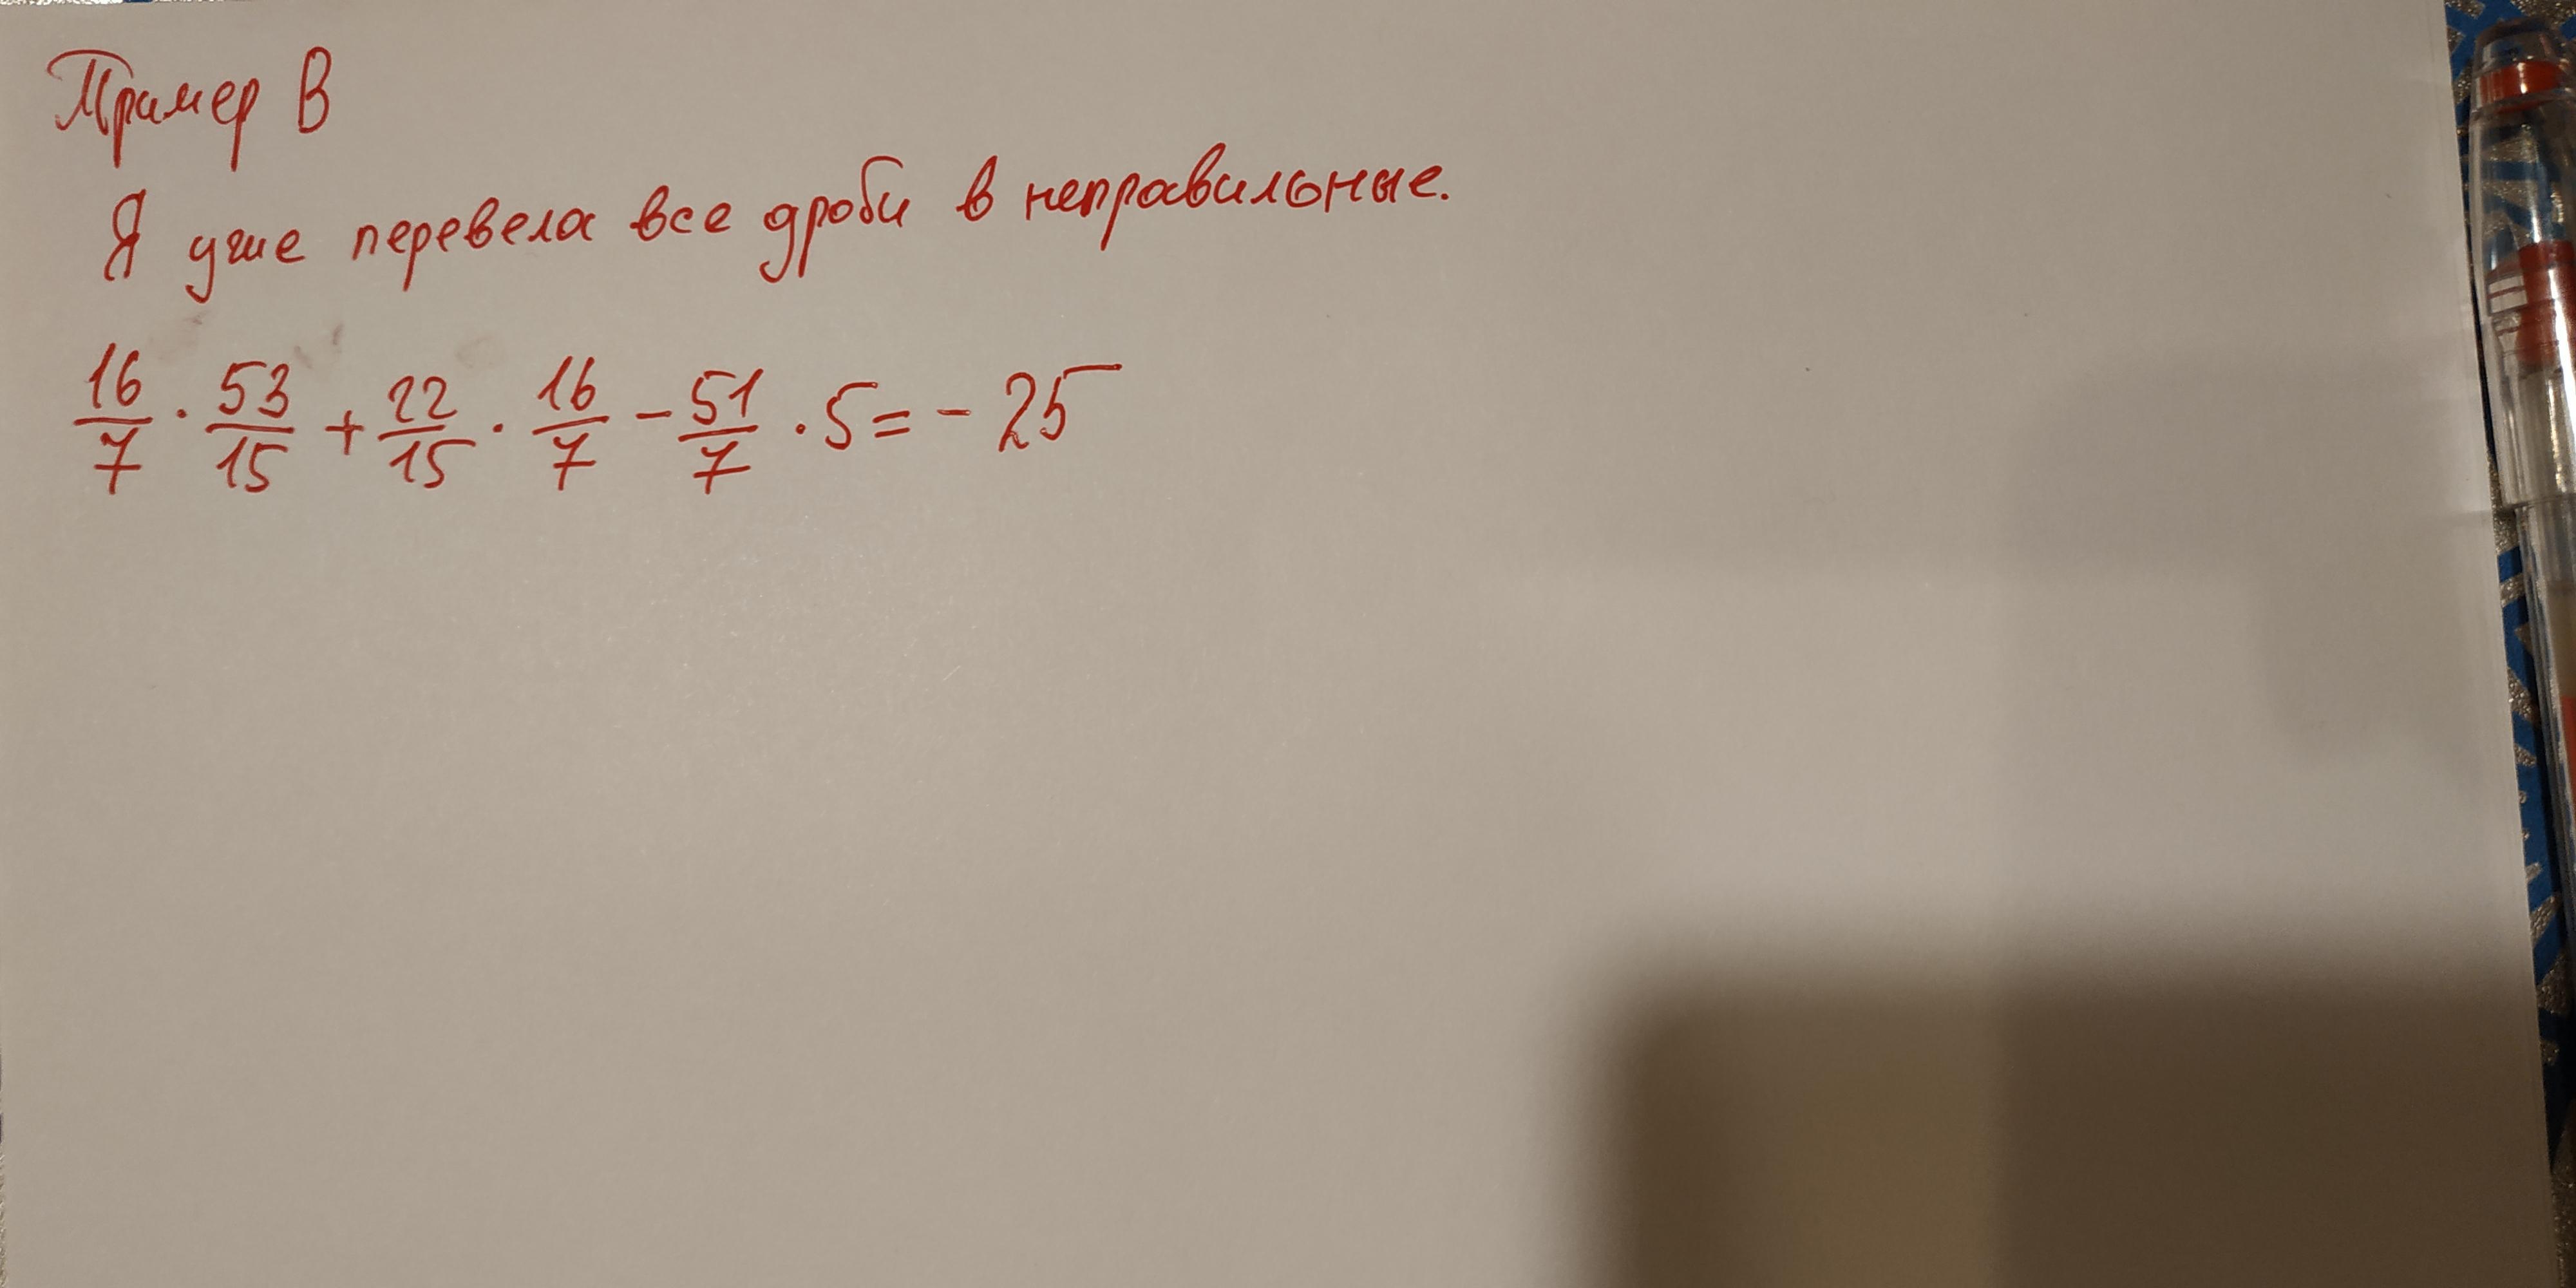 Пример В
Я уже перевела все дроби в неправильные.
16/7 · 53/15 + 22/15 · 16/7 - 51/7 · 5 = - 25